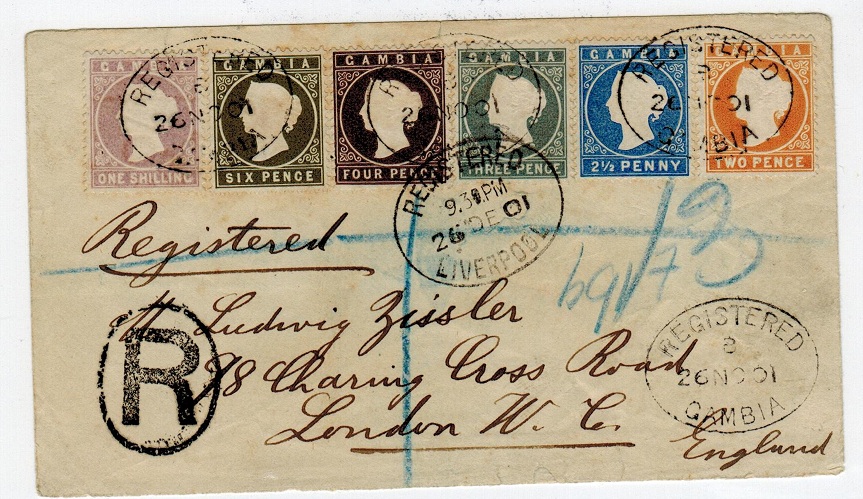 GAMBIA
ONE SHILLING
GAMBIA
SIX PENCE
GAMBIA
FOUR PENCE
GAMBIA
THREE PENCE
GAMBIA
2½ PENNY
GAMBIA
TWO PENCE
REGISTERED
8
26 NO 01
GAMBIA
REGISTERED
26 NO 01
REGISTERED
8
26 NO 01
GAMBIA
REGISTERED
9.30.PM
26 DE 01
LIVERPOOL
Registered
Ludwig Zissler
98 Charing Cross Road
London W. C.
England
R
REGISTERED
8
26 NO 01
GAMBIA